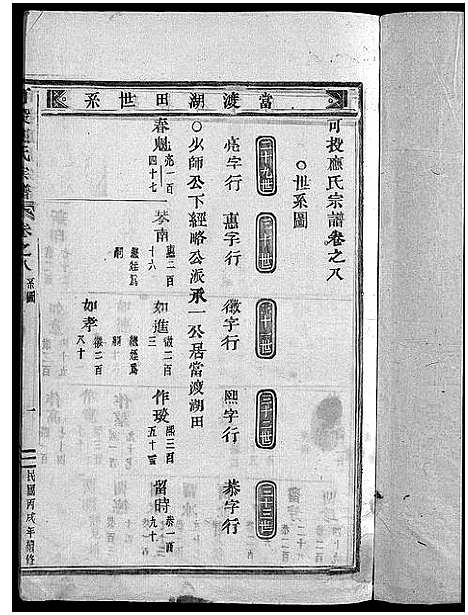 當渡湖田世系
可投應氏宗譜卷之八
○世系圖
二十九世 三十世 三十一世 三十二世 三十三世
亮字行 惠字行 徽字行 熙字行 恭字行
○少師公下經略公派承一公居當渡湖田
春魁 亮一百四十七
琴南 惠二百十六 繼廷爲嗣
如進 徽二百三 繼廷爲嗣
作琰 熙三百五十四
留時 恭一百九十
如孝 徽二百八十
氏宗譜 卷之八 系圖
一
民國丙戌年續修